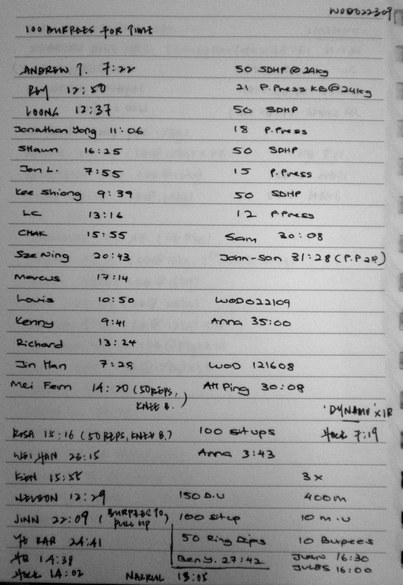 WOD022309
100 BURPEES FOR TIME
ANDREW T. 7:22 50 SDHP @ 24kg
12:50 21 P.Press KB@24kg
LOONG 12:37 50 SDHP
Jonathan Yong 11:06 18 P.Press
SHAWN 16:25 50 SDHP
Jon L. 7:55 15 P.Press
Kee Shiong 9:39 50 SDHP
LC 13:16 12 P.Press
CHAK 15:55 Sam 30:08
Sze Ning 20:43 John-Son 31:28 (P.P 20)
Marcus 17:14
Louis 10:50 WOD022109
Kenny 9:41 Anna 35:00
Richard 13:24
Jin Han 7:29 WOD 121608
Mei Fern 14:20 (50 REPS, KNEE B.) Ah Ping 30:08
'DYNAMO' x 1R
ROSA 15:16 (50 REPS, KNEE B.) 100 situps 7:19
WEI HAN 26:15 Anna 3:43
15:55 3x
NELSON 12:29 150 D.U 400m
JINN 22:09 (BURPEES TO PULL UP) 100 situp 10 m.u
24:41 50 Ring Dips 10 Burpees
14:38 Ben Y. 27:42 16:30
14:02 18:05 16:00